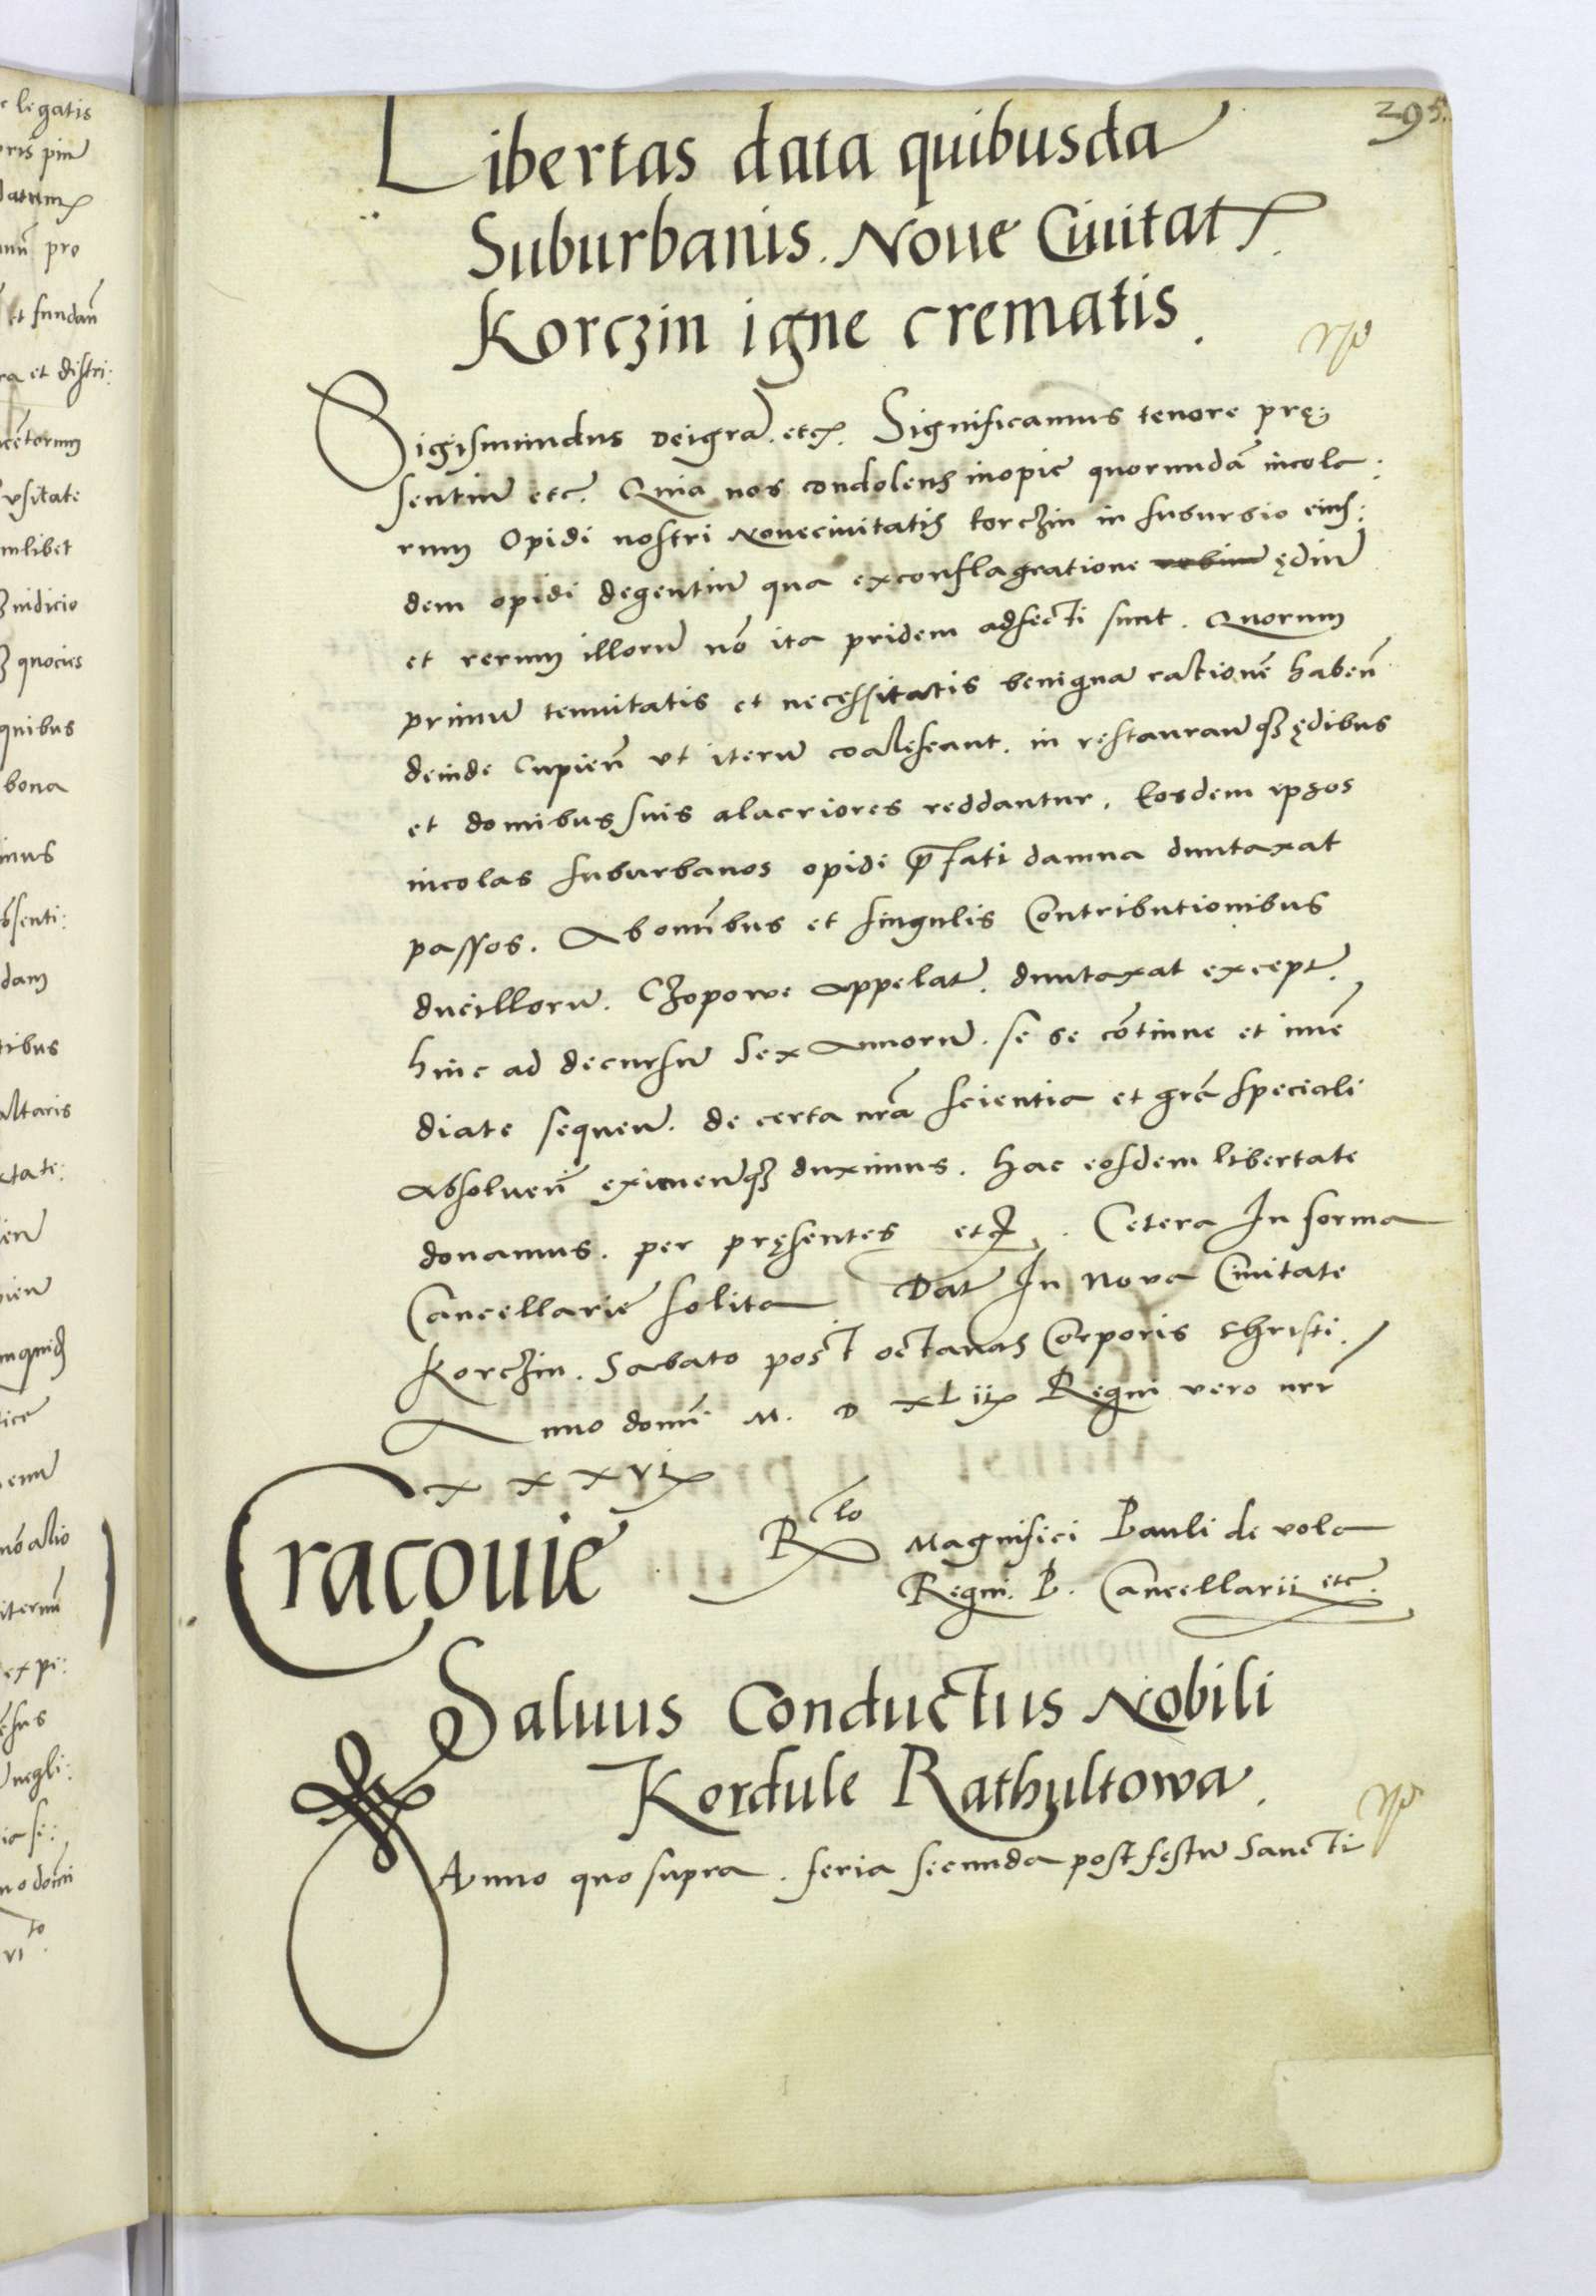 295.
Libertas data quibusda
Suburbanis. Noue Ciuitat
Korczin igne crematis.
Sigismundus Dei gra. etc. Significamus tenore prę
sentiu etc. Quia nos condolens inopie quorundā incola:
rum Opidi nostri Noueciuitatis korczin in suburbio eius:
dem opidi degentiu qua exconflagratione ędiu
et rerum illoru nō ita pridem adfecti sunt. Quorum
primu tenuitatis et necessitatis benigna rationē haben
deinde Cupien vt iteru coalescant. in restauran qz ędibus
et domibus suis alacriores reddantur. Eosdem ipsos
incolas suburbanos opidi p̄fati damna duntaxat
passos. Ab omībus et singulis Contributionibus
ducilloru. Czopowe appelat. duntaxat except.
hinc ad decursu Sex Annoru. se se cōtinue et imē
diate sequen. de certa nrā scientia et grā speciali
absoluen eximenqz duximus. hac eosdem libertate
donamus. per pręsentes etc. Cetera In forma
Cancellarie solita Dat In Nova Ciuitate
Korczin. Sabato post octauas Corporis Christi.
Anno domī M. D XLii Regni vero nrī
xxxvi
Cracouie
Rlo Magnifici Pauli de vola
Regni. P. Cancellarii etc.
Saluus Conductus Nobili
Kordule Rathultowa.
Anno quo supra. feria secunda post festu Sancti